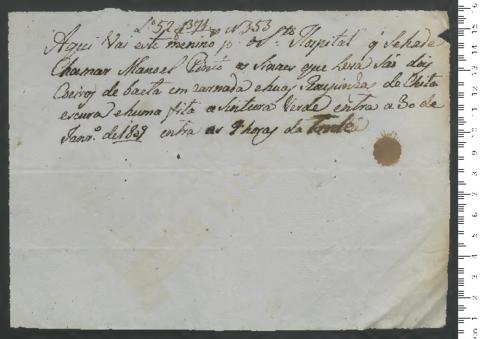 Lº 52 f 374 v N 353
Aqui Vai este menino pº o Sto Hospital q Sehade
Chamar Manoel Pinto os Sinaes que Leva São dois
Coeiros de baeta em carnada ehuas Roupinhas de Chita
escura ehuma fita a Sintura Verde entra a 30 de
Janrº de entra as 9 horas da Tarde